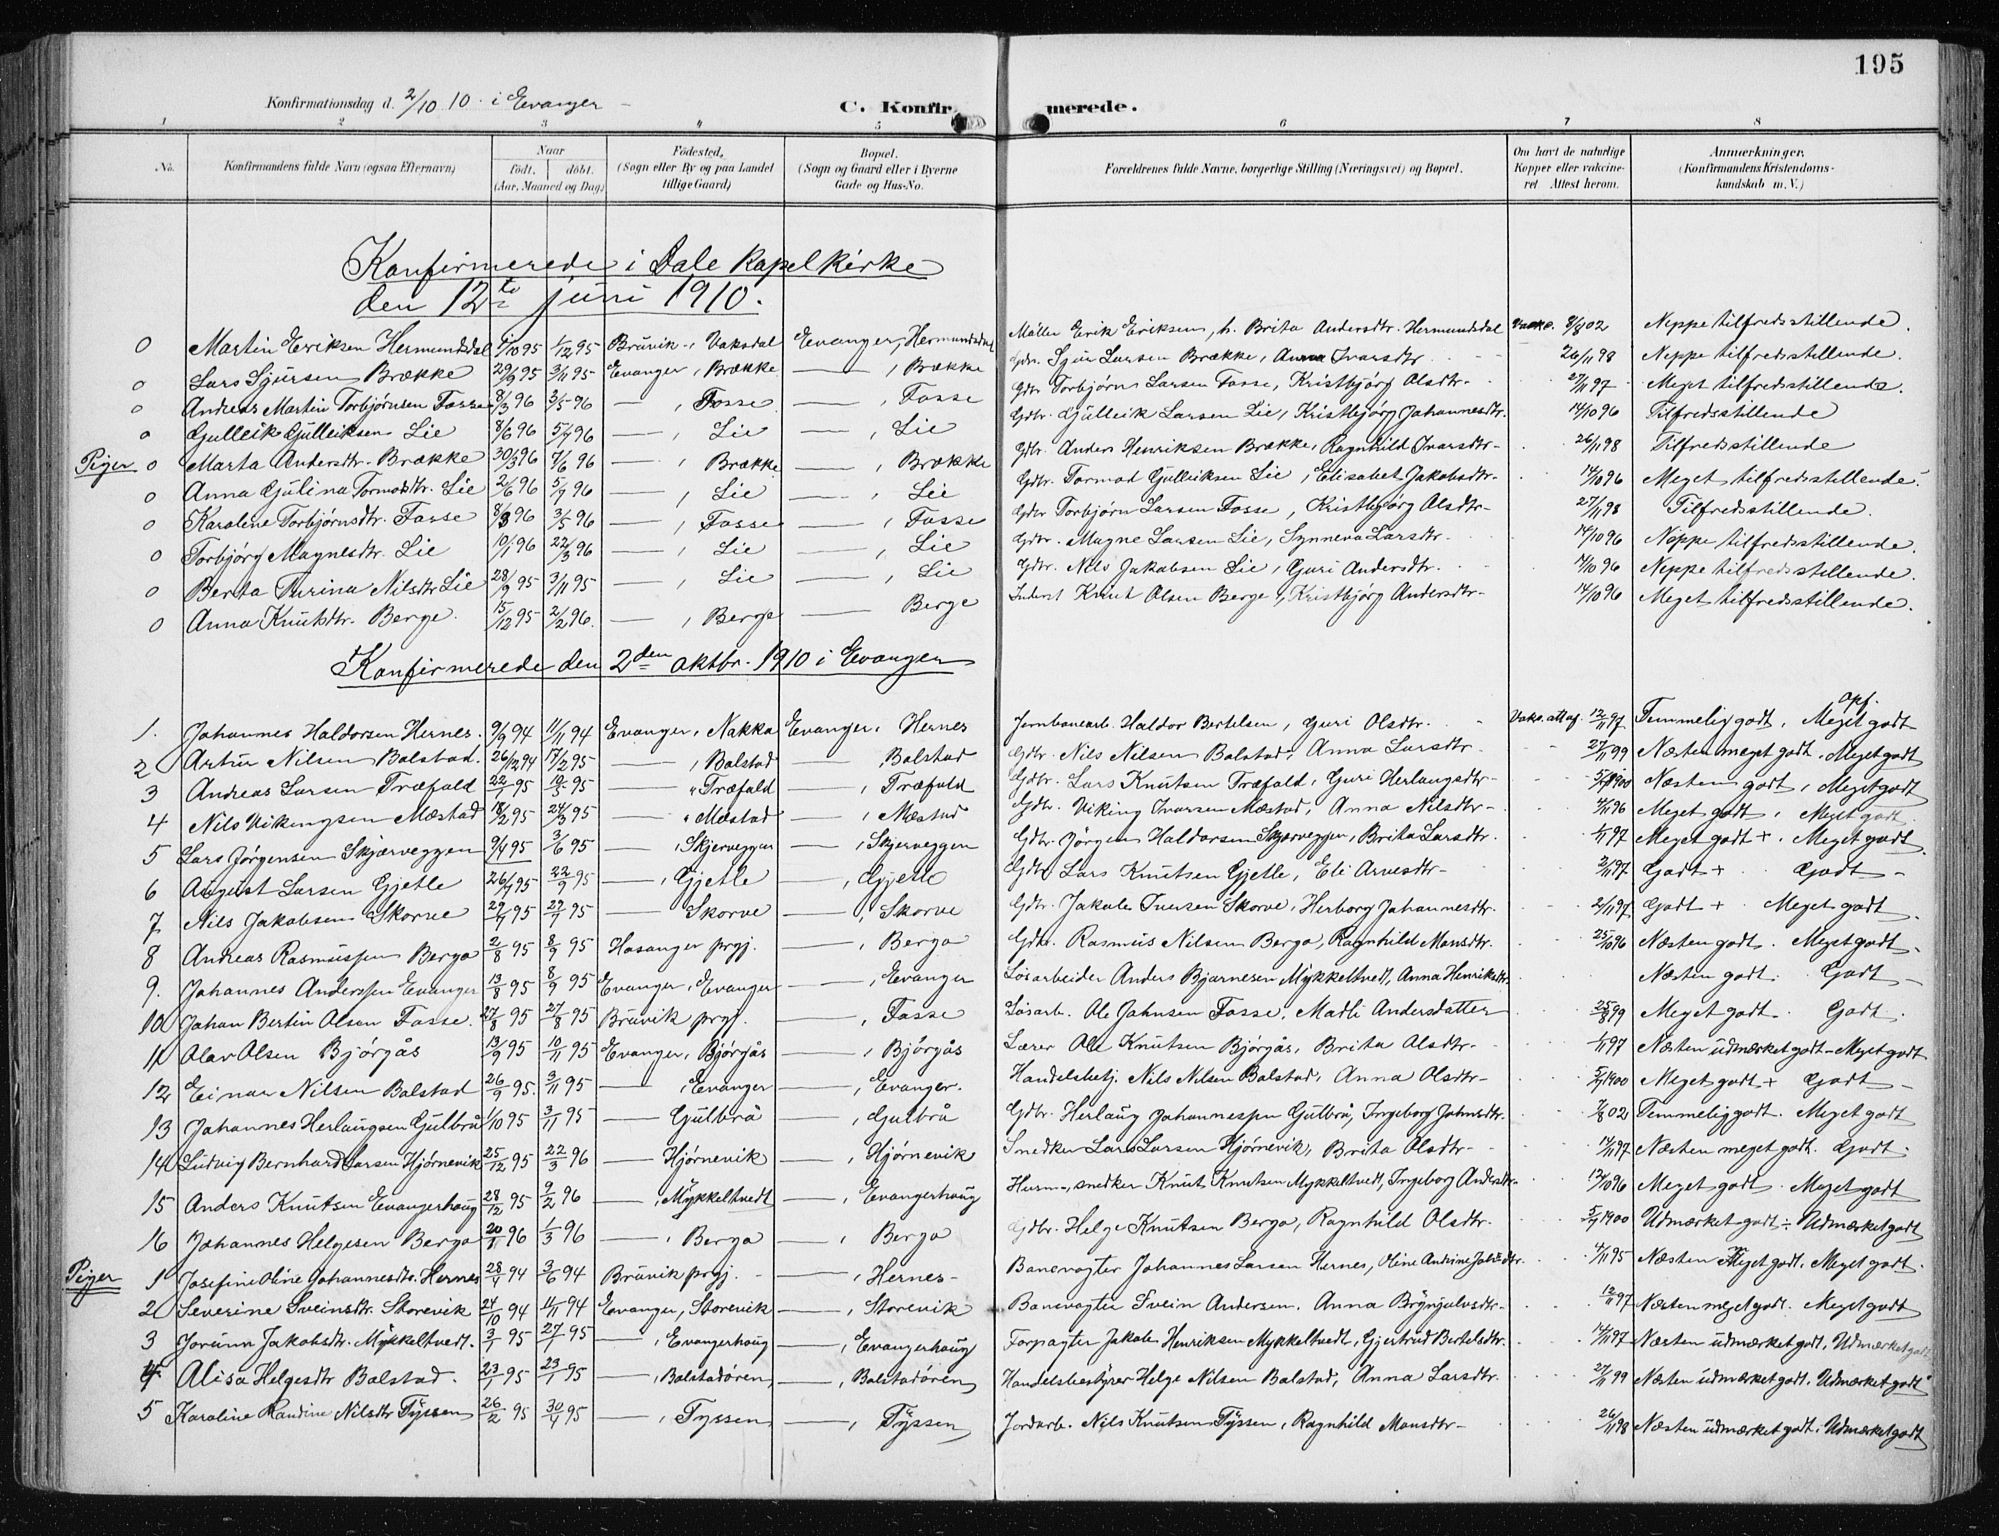 195
Konfirmationsdag d. 2/10 10. i Evanger
C. Konfirmerede.
1 2 3 4 5 6 7 8
No. Konfirmandens fulde Navn (ogsaa Efternavn) Naar født, døbt. (Aar, Maaned og Dag) Fødested, (Sogn eller By og paa Landet tillige Gaard) Bopæl. (Sogn og Gaard eller i Byerne Gade og Hus-No. Forældrenes fulde Navne, borgerlige Stilling (Næringsvei) og Bopæl. Om havt de naturlige Kopper eller vakcineret Attest herom. Anmærkninger. (Konfirmandens Kristendomskundskab m. V.)
Konfirmerede i Dale Kapelkirke
den 12te juni 1910.
0 Martin Eriksen Hermundsdal 1/10 95 1/12 95 Bruvik, Vaksdal Evanger, Hermundsdal Møller Erik Eriksen, h. Brita Andersdtr. Hermundsdal Vakc. 8/8 02 Neppe tilfredsstillende.
0 Lars Sjursen Brække 29/9 95 3/11 95 Evanger, Brække — , Brække Gdbr. Sjur Larsen Brække, Anna Ivarsdtr 26/11 98 Neppe tilfredsstillende.
0 Andreas Martin Torbjørnsen Fosse 8/3 96 3/5 96 — , Fosse — , Fosse Gdbr Torbjørn Larsen Fosse, Kristbjørg Olsdtr. 27/11 97 Meget tilfredsstillende.
0 Gulleik Gulleiksen Lie 8/6 96 5/7 96 — , Lie — , Lie Gdbr. Gulleik Larsen Lie, Kristbjørg Johannesdtr. 14/10 96 Tilfredsstillende
Piger 0 Marta Andersdtr. Brække 30/3 96 7/6 96 — , Brække — , Brække Gdbr. Anders Henriksen Brække, Ragnhild Ivarsdtr 26/11 98 Tilfredsstillende
0 Anna Gulina Tormodsdtr. Lie 2/6 96 5/7 96 — , Lie — , Lie Gdbr. Tormod Gulleiksen Lie, Elisabet Jakobsdtr. 14/10 96 Meget tilfredsstillende.
0 Karoline Torbjørnsdtr. Fosse 8/3 96 3/5 96 — , Fosse — , Fosse Gdbr Torbjørn Larsen Fosse, Kristbjørg Olsdtr 27/11 98 Tilfredsstillende.
0 Torbjørg Magnesdtr. Lie 10/1 96 22/3 96 — , Lie — , Lie Gdbr. Magne Larsen Lie, Synneva Larsdtr. 14/10 96 Neppe tilfredsstillende.
0 Berta Turina Nilsdtr Lie 28/9 95 3/11 95 — , Lie — , Lie Gdbr. Nils Jakobsen Lie, Guri Andersdtr. 14/10 96 Neppe tilfredsstillende.
0 Anna Knutsdtr. Berge. 15/12 95 2/2 96. — , Berge — Berge Inderst Knut Olsen Berge, Kristbjørg Andersdtr 14/10 96 Meget tilfredsstillende.
Konfirmerede den 2den oktbr. 1910 i Evanger
opf.
1. Johannes Haldorsen Hernes. 9/9 94 11/11 94 Evanger, Nakka Evanger, Hernes Jernbanearb. Haldor Bertelsen, Guri Olsdtr. Vakc. att af 12/11 97. Temmelig godt, Meget godt
2 Artur Nilsen Bolstad. 26/12 94 17/2 95 — , Bolstad — Bolstad Gdbr. Nils Nilsen Bolstad, Anna Larsdtr 27/11 99 Næsten meget godt. Meget godt
3 Andreas Larsen Træfald 22/1 95 10/3 95 — , Træfald — , Træfald Gdbr. Lars Knutsen Træfald, Guri Herlaugsdtr 5/9 1900 Næsten godt, Meget godt
4 Nils Vikingsen Mæstad 18/2 95 24/3 95 — , Mæstad — , Mæstad Gdbr. Viking Ivarsen Mæstad, Anna Nilsdtr 4/11 96 Meget godt, Meget godt
5 Lars Jørgensen Skjærveggen 9/4 95 3/6 95 — , Skjerveggen — , Skjerveggen Gdbr. Jørgen Haldorsen Skjærveggen, Brita Larsdtr. 1/11 97 Meget godt +. Meget godt
6 August Larsen Gjetle 26/7 95 22/9 95 — , Gjetle — , Gjetle Gdbr Lars Knutsen Gjetle, Eli Arnesdtr 2/11 97 Godt + Godt
7 Nils Jakobsen Skorve 95 95 — Skorve — , Skorve Gdbr. Jakob Iversen Skorve, Herborg Johannesdtr. 2/11 97. Godt + Meget godt
8 Andreas Rasmussen Bergo 2/8 95 8/9 95 Hosanger prgj. — , Bergo Gdbr. Rasmus Nilsen Bergo, Ragnhild Monsdtr. 25/10 96 Næsten godt. Meget godt
9. Johannes Anderssen Evanger 13/8 95 8/9 95 Evanger, Evanger — , Evanger Løsarbeider Anders Bjarnesen Mykkeltvedt, Anna Henriksdtr Næsten godt. Godt
10 Johan Bertin Olsen Fosse. 27/8 95 27/8 95 Bruvik prgj. — , Fosse Løsarb. Ole Johnsen Fosse, Madli Andersdatter 25/8 99 Meget godt. Godt.
11 Olav Olsen Bjørgås 13/9 95 10/11 95 Evanger, Bjørgås — , Bjørgås Lærer Ole Knutsen Bjørgås, Brita Olsdtr. 1/11 97 Næsten udmærket godt - Meget godt
12 Einar Nilsen Bolstad 26/9 95. 3/11 95 — , Evanger — , Evanger. Handelsbetj. Nils Nilsen Bolstad, Anna Olsdtr 5/9 1900 Meget godt + Godt
13 Johannes Herlaugsen Gulbrå 1/10 95 3/11 95 — Gulbrå — , Gulbrå Gdbr. Herlaug Johannessen Gulbrå, Ingeborg Johnsdtr. 7/8 02 Temmelig godt. Meget godt
14 Ludvig Bernhard Larsen Hjørnevik 25/12 95 22/3 96 — Hjørnevik — , Hjørnevik Snedker Lars Larsen Hjørnevik, Brita Olsdtr 14/11 97 Næsten meget godt. Godt.
15 Anders Knutsen Evangerhaug 28/12 95 9/2 96 — , Mykkeltvedt — , Evangerhaug Husm., snedker Knut Knutsen Mykkeltvedt, Ingeborg Andersdtr 13/10 96 Meget godt. Meget godt
16 Johannes Helgesen Bergo 20/1 96 1/3 96 — , Bergo — , Bergo Gdbr. Helge Knutsen Bergo, Ragnhild Olsdtr. 5/9 1900 Udmærket godt ÷ Udmærket godt
Piger 1 Josefine Oline Johannesdtr. Hernes 28/4 94 3/6 94 Bruvik prgj. — , Hernes Banevogter Johannes Larsen Hernes, Oline Andrine 4/11 95 Næsten Meget godt. Meget godt
2 Severine Sveinsdtr. Storevik 24/10 94 11/11 94 Evanger, Storevik — , Storevik Banevogter Svein Andersen. Anna Brynjulvsdtr 12/11 97 Næsten meget godt. Meget godt
3 Jorunn Jakobsdtr. Mykkeltvedt. 3/1 95 27/1 95 — , Evangerhaug — , Evangerhaug Forpagter Jakob Henriksen Mykkeltvedt, Gjertrud Bertelsdtr 14/11 97 Næsten udmærket godt. Udmærket godt
4 Alisa Helgesdtr Bolstad. 23/1 95 23/1 95 — , Bolstadøren — , Bolstadøren Handelsbestyrer Helge Nilsen Bolstad, Anna Larsdtr. 27/11 99 Næsten udmærket godt. Udmærket godt
5 Karoline Randine Nilsdtr Tyssen 26/2 95 30/4 95 — , Tyssen — , Tyssen Jordarb. Nils Knutsen Tyssen, Ragnhild Monsdtr 26/11 98 Næsten udmærket godt. Udmærket godt